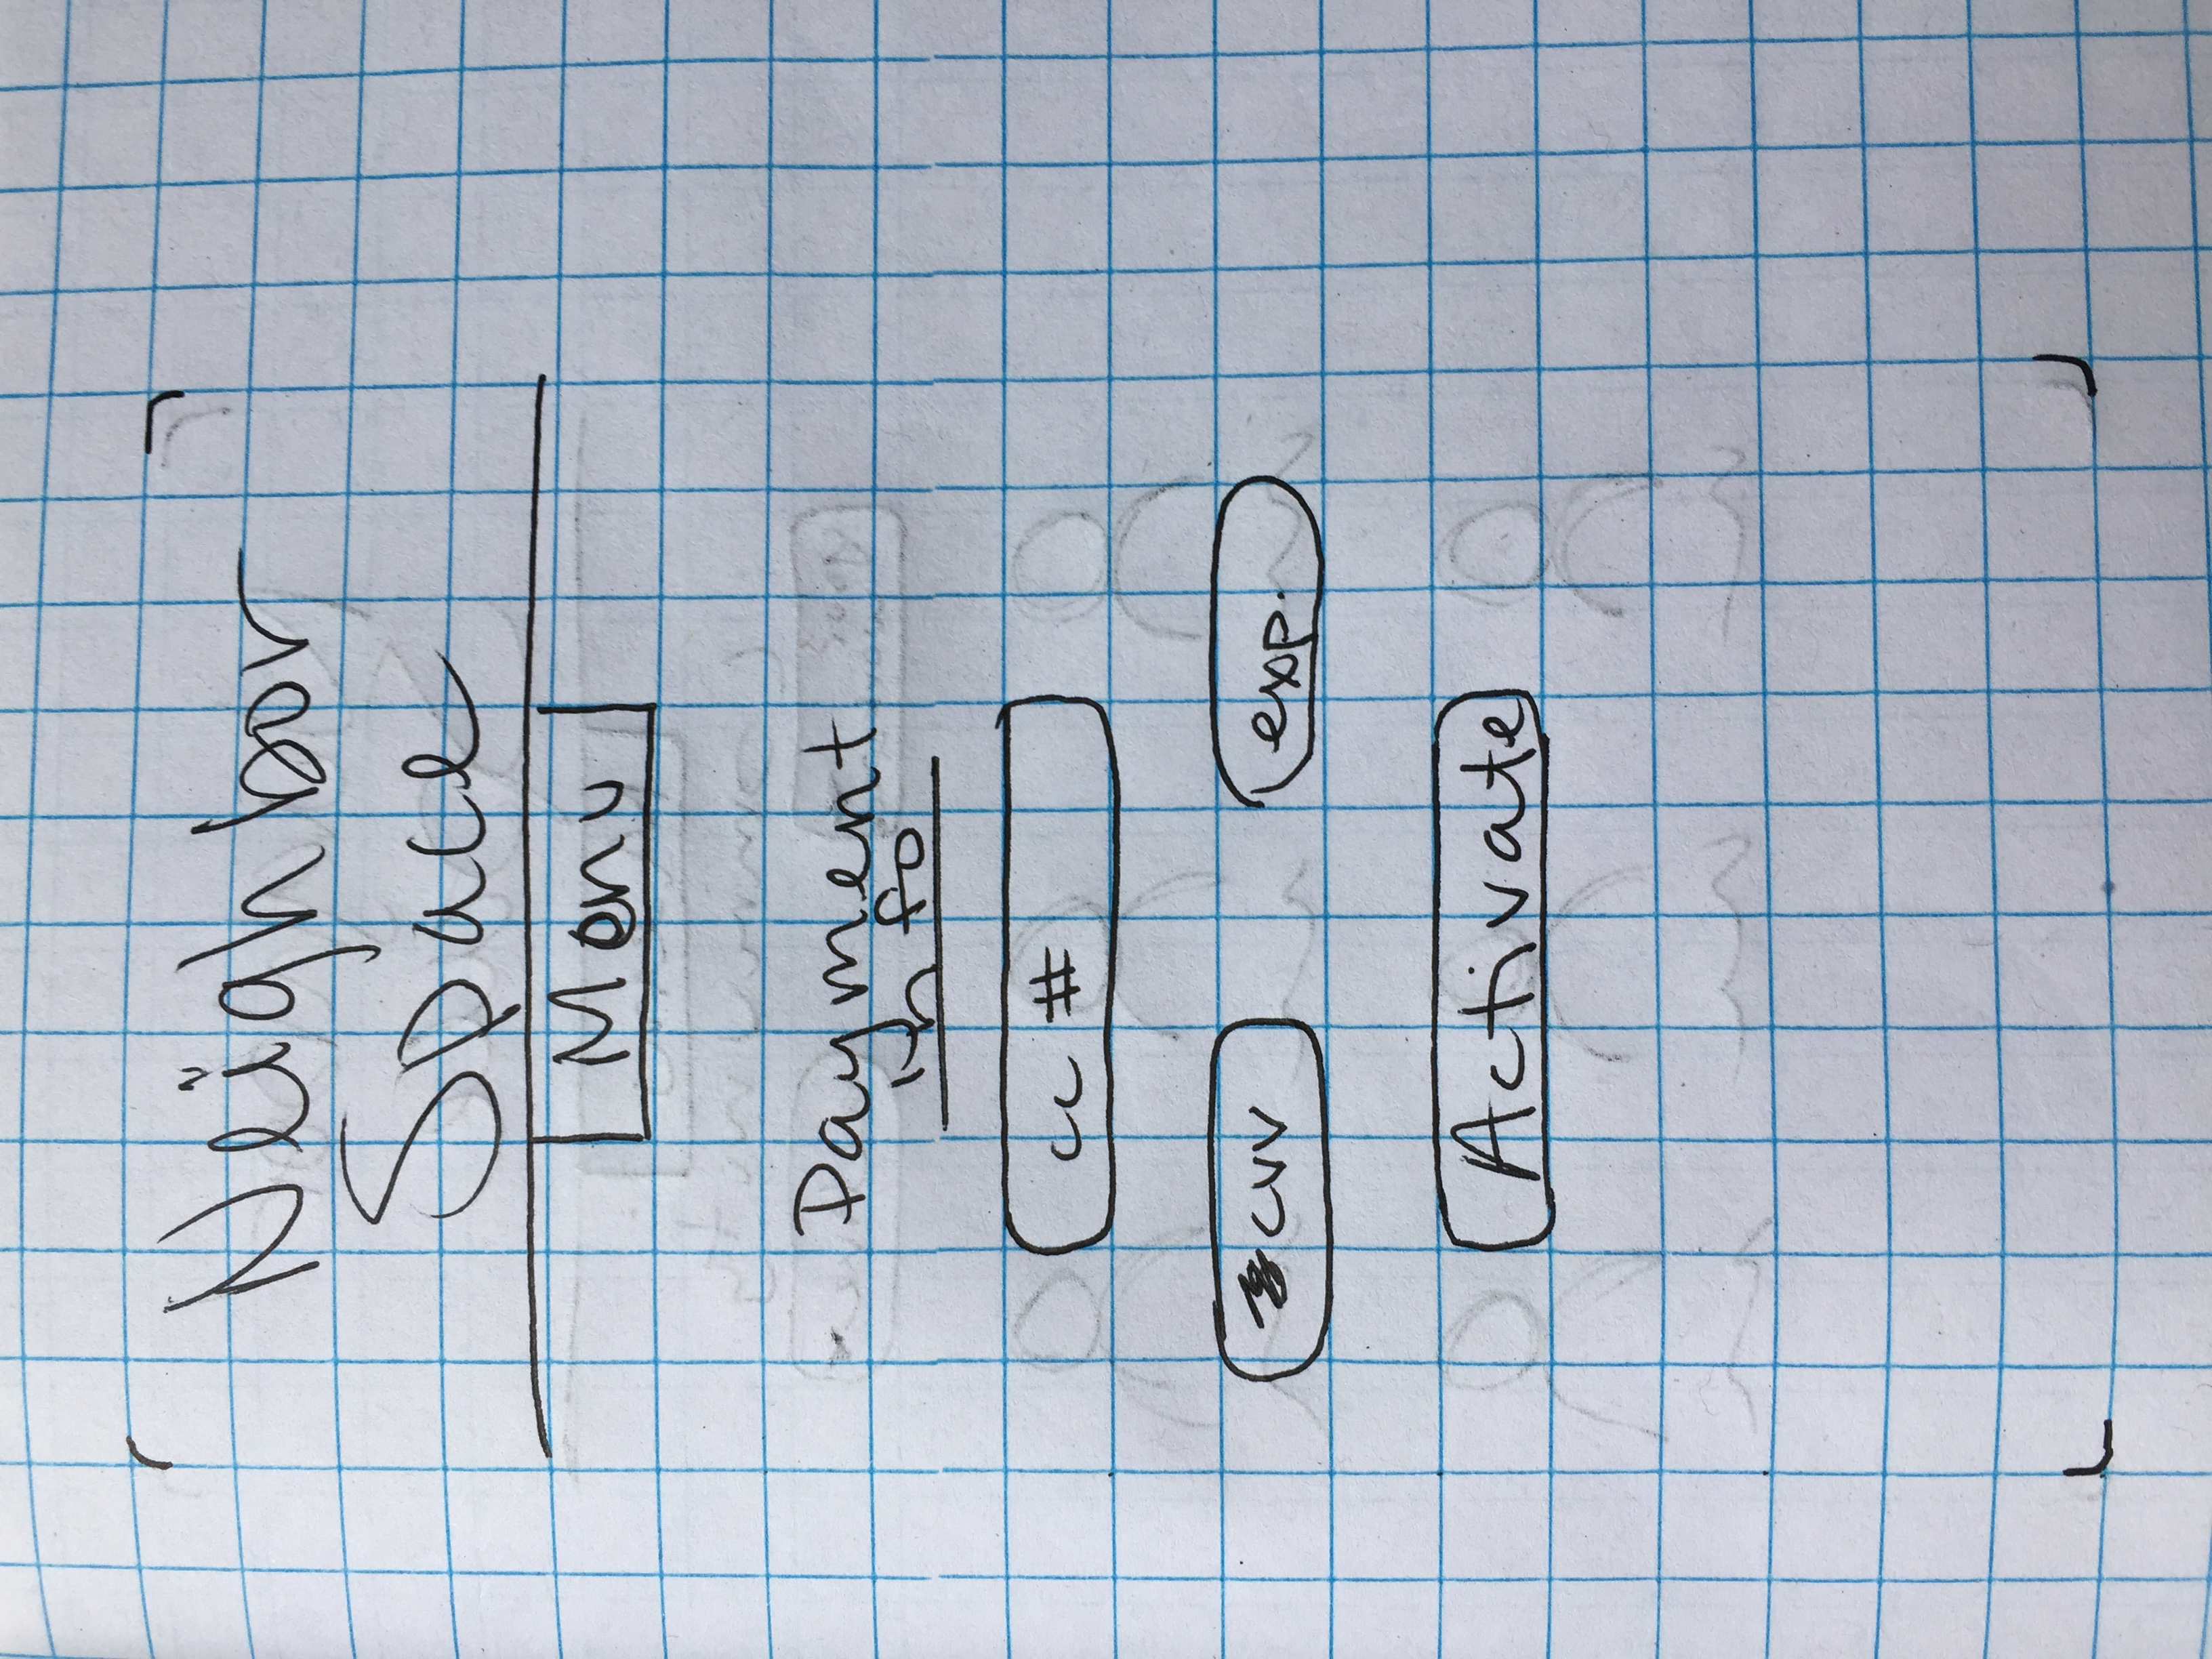 Neighbor
Space
Menu
Payment
info
cc #
cvv
exp.
Activate